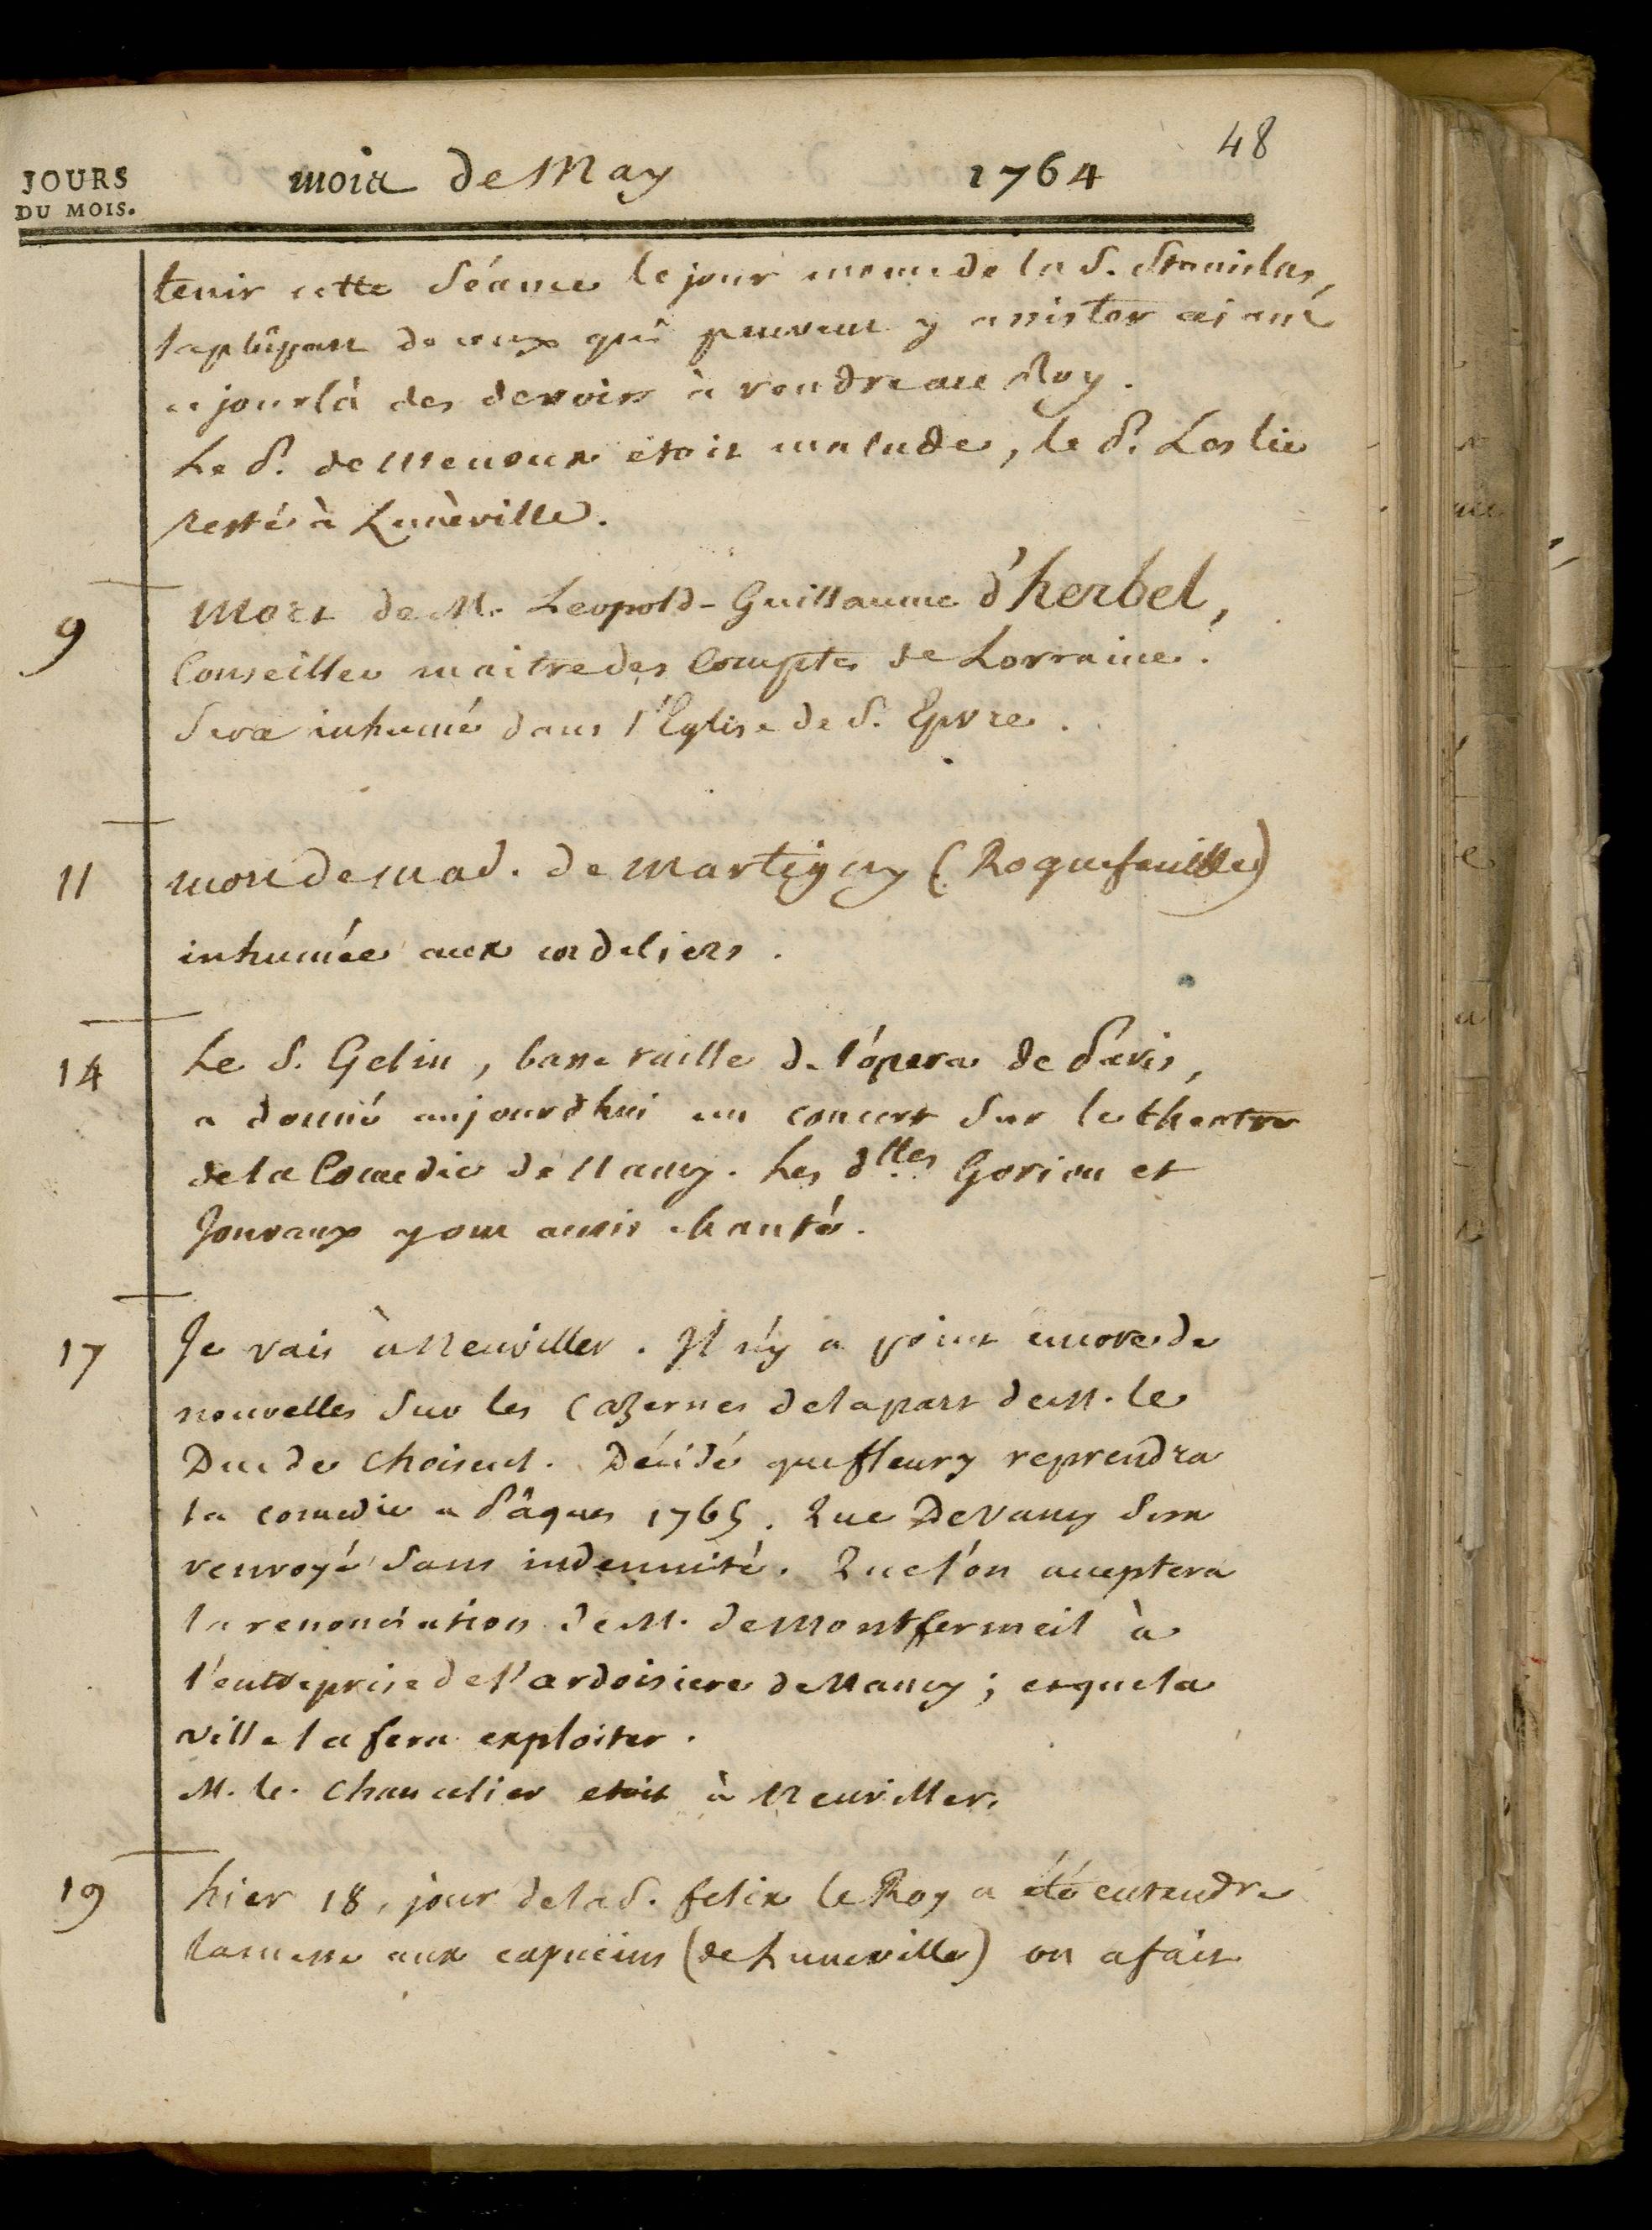 48
JOURS
DU MOIS.
mois de May 1764
tenir cette Séance le jour meme de la S. Stanislas,
la plûpart de ceux qui peuvent y assister aiant
ce jour là des devoirs à rendre au Roy.
Le P. de Menoux étoit malade, le P. Leslie
resté à Lunèville.
9
Mort de M. Leopold-Guillaume d'herbel,
Conseiller maitre des Comptes de Lorraine.
Sera inhumé dans l'Eglise de S. Epvre.
11
mort de Mad. de Martigny (Roquefeuille)
inhumée aux cordeliers.
14
Le S. Gelin, basse taille de l'opera de Paris,
a donné aujourdhui un concert sur le theatre
de la Comedie de Nancy. Les dlles Goriou et
Jouvaux y ont aussi chanté.
17
Je vais à Neuviller. Il n'y a point encore de
nouvelles sur les Cazernes de la part de M. le
Duc de Choiseul. Décidé que fleury reprendra
la comedie a Pâques 1765. Que Devaux sera
renvoyé sans indemnité. Que l'on acceptera
la renonciation de M. de Montfermeil à
l'entreprise de l'ardoisiere de Nancy; et que la
ville la fera exploiter.
M. le Chancelier etoit à Neuviller.
19
hier 18, jour de la S. felix le Roy a été entendre
la messe aux capucins (de Luneville) on a fait